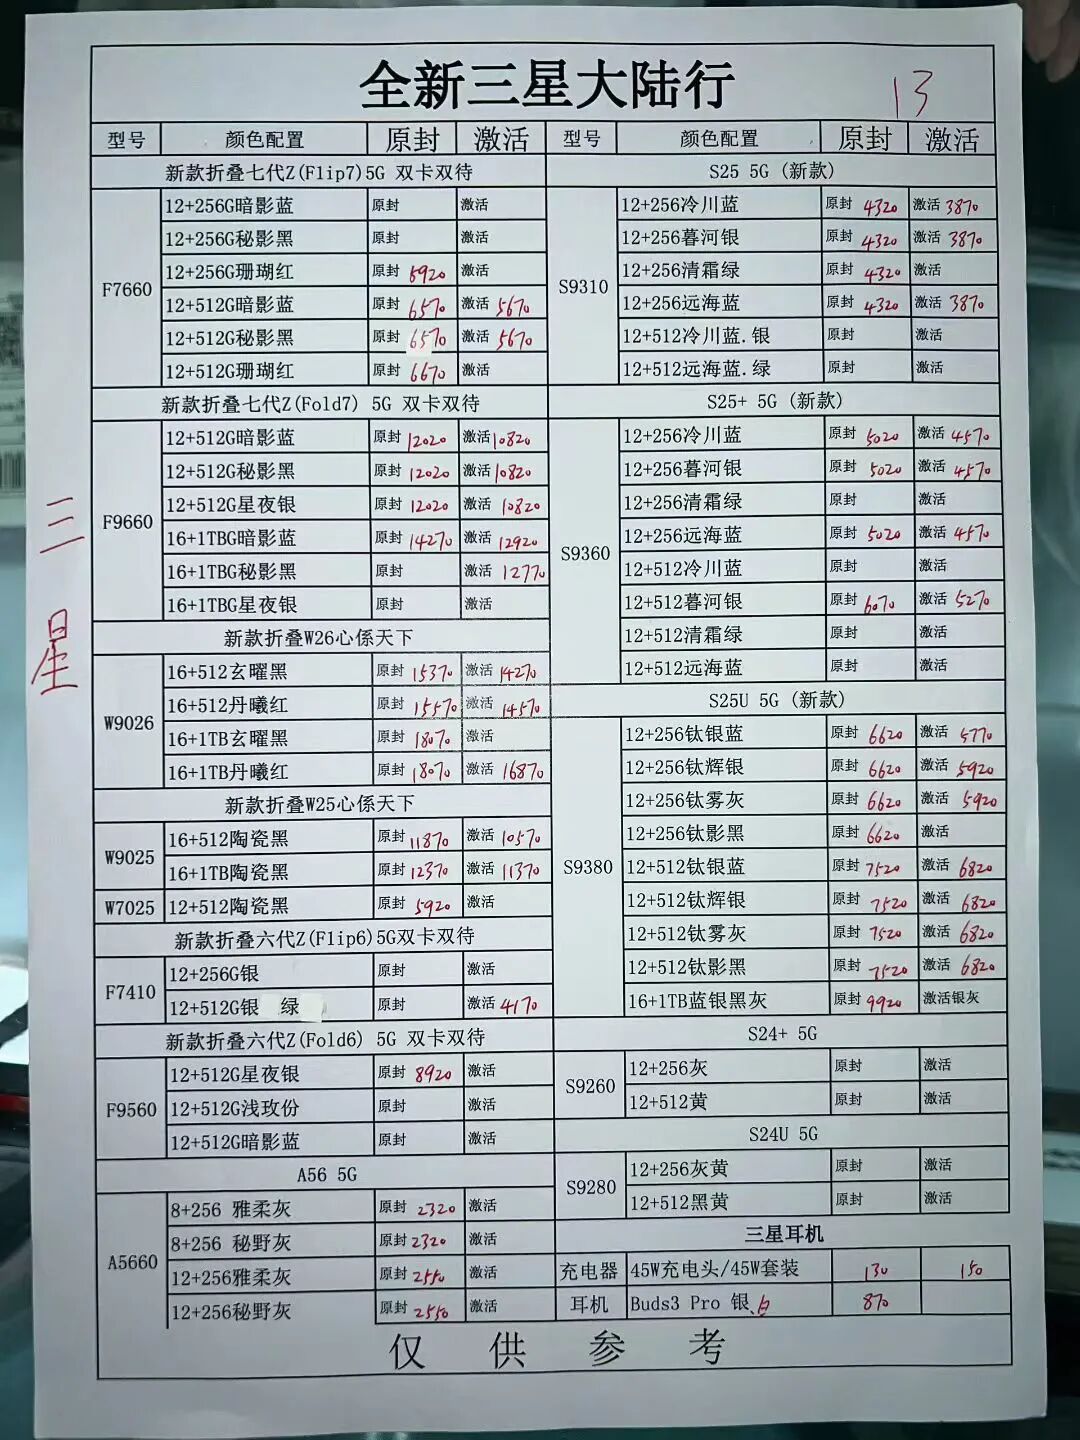 全新三星大陆行 13
三星
型号 颜色配置 原封 激活
新款折叠七代Z(Flip7)5G 双卡双待
F7660
12+256G暗影蓝 原封 激活
12+256G秘影黑 原封 激活
12+256G珊瑚红 原封 5920 激活
12+512G暗影蓝 原封 6570 激活 5670
12+512G秘影黑 原封 6570 激活 5670
12+512G珊瑚红 原封 6670 激活
新款折叠七代Z(Fold7) 5G 双卡双待
F9660
12+512G暗影蓝 原封 12020 激活 10820
12+512G秘影黑 原封 12020 激活 10820
12+512G星夜银 原封 12020 激活 10820
16+1TBG暗影蓝 原封 14270 激活 12920
16+1TBG秘影黑 原封 激活 12770
16+1TBG星夜银 原封 激活
新款折叠W26心係天下
W9026
16+512玄曜黑 原封 15370 激活 14270
16+512丹曦红 原封 15570 激活 14570
16+1TB玄曜黑 原封 18070 激活
16+1TB丹曦红 原封 18070 激活 16870
新款折叠W25心係天下
W9025
16+512陶瓷黑 原封 11870 激活 10570
16+1TB陶瓷黑 原封 12370 激活 11370
W7025 12+512陶瓷黑 原封 5920 激活
新款折叠六代Z(Flip6)5G双卡双待
F7410
12+256G银 原封 激活
12+512G银 绿 原封 激活 4170
新款折叠六代Z(Fold6) 5G 双卡双待
F9560
12+512G星夜银 原封 8920 激活
12+512G浅玫份 原封 激活
12+512G暗影蓝 原封 激活
A56 5G
A5660
8+256 雅柔灰 原封 2320 激活
8+256 秘野灰 原封 2320 激活
12+256雅柔灰 原封 2550 激活
12+256秘野灰 原封 2550 激活
型号 颜色配置 原封 激活
S25 5G (新款)
S9310
12+256冷川蓝 原封 4320 激活 3870
12+256暮河银 原封 4320 激活 3870
12+256清霜绿 原封 4320 激活
12+256远海蓝 原封 4320 激活 3870
12+512冷川蓝.银 原封 激活
12+512远海蓝.绿 原封 激活
S25+ 5G (新款)
S9360
12+256冷川蓝 原封 5020 激活 4570
12+256暮河银 原封 5020 激活 4570
12+256清霜绿 原封 激活
12+256远海蓝 原封 5020 激活 4570
12+512冷川蓝 原封 激活
12+512暮河银 原封 6070 激活 5270
12+512清霜绿 原封 激活
12+512远海蓝 原封 激活
S25U 5G (新款)
S9380
12+256钛银蓝 原封 6620 激活 5770
12+256钛辉银 原封 6620 激活 5920
12+256钛雾灰 原封 6620 激活 5920
12+256钛影黑 原封 6620 激活
12+512钛银蓝 原封 7520 激活 6820
12+512钛辉银 原封 7520 激活 6820
12+512钛雾灰 原封 7520 激活 6820
12+512钛影黑 原封 7520 激活 6820
16+1TB蓝银黑灰 原封 9920 激活银灰
S24+ 5G
S9260
12+256灰 原封 激活
12+512黄 原封 激活
S24U 5G
S9280
12+256灰黄 原封 激活
12+512黑黄 原封 激活
三星耳机
充电器 45W充电头/45W套装 130 150
耳机 Buds3 Pro 银、白 870
仅供参考